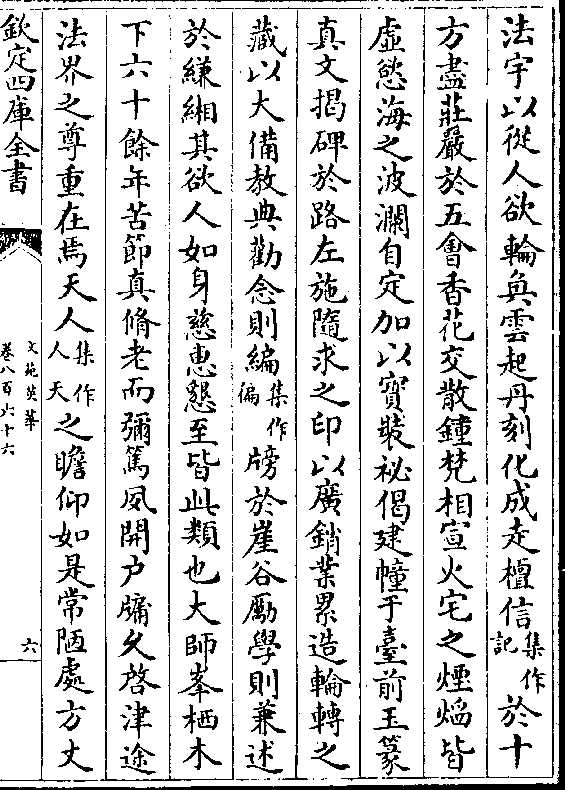 法宇以從人欲輪奐雲起丹刻化成走檀信集作記於十
方盡莊嚴於五會香花交散鍾梵相宣火宅之煙焰皆
虛慾海之波瀾自定加以寶裝祕偈建幢于臺前玉篆
真文揭碑於路左施隨求之印以廣銷業累造輪轉之
藏以大備教典勸念則編集作徧牓於崖谷勵學則兼述
於縑緗其欲人如身慈惠懇至皆此類也大師峯栖木
下六十餘年苦節真脩老而彌篤夙開户牖久啓津途
法界之尊重在焉天人集作人天之瞻仰如是常陋處方丈
欽定四庫全書
文苑英華
卷八百六十六
六